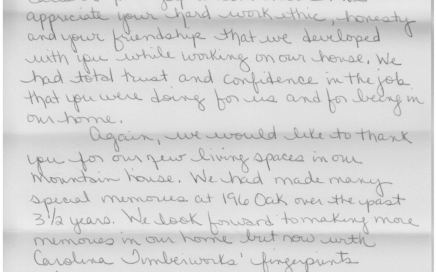 appreciate your hard work ethic, honesty
and your friendship that we developed
with you while working on our house. We
had total trust and confidence in the job
that you were doing for us and for being in
our home.
Again, we would like to thank
you for our new living spaces in our
mountain house. We had made many
special memories at 196 Oak over the past
3½ years. We look forward to making more
memories in our home but now with
Carolina Timberworks' fingerprints